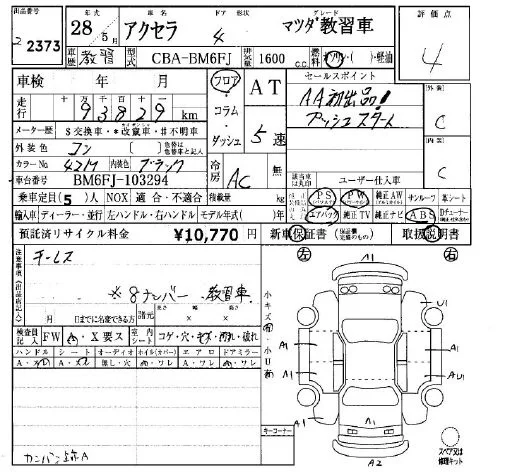 出品番号 2373
年式 28年5月 車名 アクセラ ドア 4 形状 グレード マツダ教習車 評価点 4
車歴 教習 型式 CBA-BM6FJ 排気量 1600 c.c. 燃料 ガソリン・軽油
車検 年 月 フロア・コラム・ダッシュ AT 5速 セールスポイント
AA初出品!
プッシュスタート
走行 十万 万 千 百 十 一 93829 km
メーター歴 $交換車・*改竄車・#不明車
外装 C
外装色 コン
カラーNo. 42M 内装色 ブラック 冷房 AC
内装 C
車台番号 BM6FJ-103294 ユーザー仕入車
乗車定員(5)人 NOX 適合・不適合 積載量 kg PS PW 純正AW サンルーフ 革シート
輸入車 ディーラー・並行 左ハンドル・右ハンドル モデル年式( )年 エアバック 純正TV 純正ナビ ABS
預託済リサイクル料金 ¥10,770 円 新車保証書 取扱説明書
左 右
注意事項
チーレス
※8ナンバー 教習車
月 日までに名変できる方 諸元 長さ cm 幅 cm 高さ cm
検査員記入 FW A・X要ス 室内シート コゲ・穴・キズ・汚れ・破れ
ハンドル シート オーディオ ホイル(カバー) エアロ ドアミラー
カンバン跡A
キーコーナー
A1
U1
A1 A1
A1 AU1
A1 A1 A1
A2
スペア又は修理キット